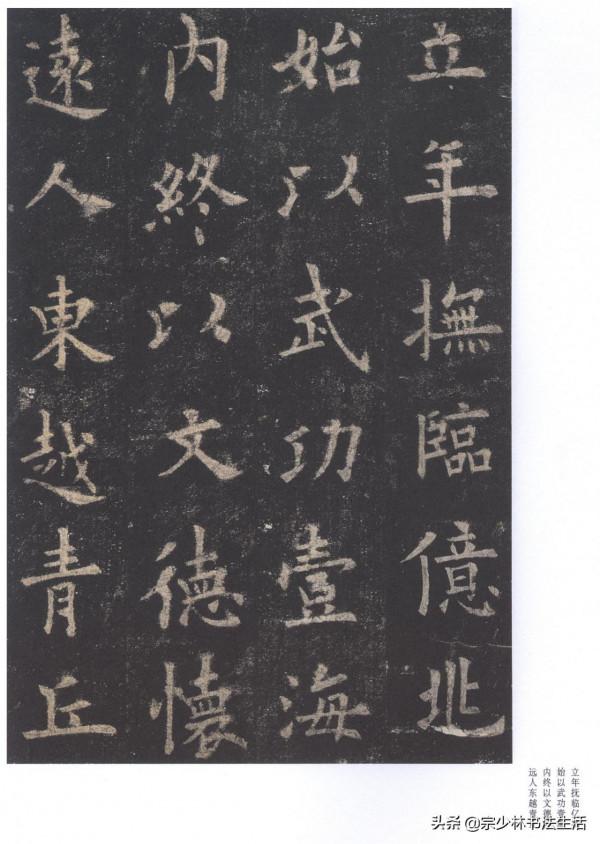 立年撫臨億兆
始以武功壹海
内終以文德懷
遠人東越青丘
立年抚临亿
始以武功壹
内终以文德
远人东越青
头条 @宗少林书法生活